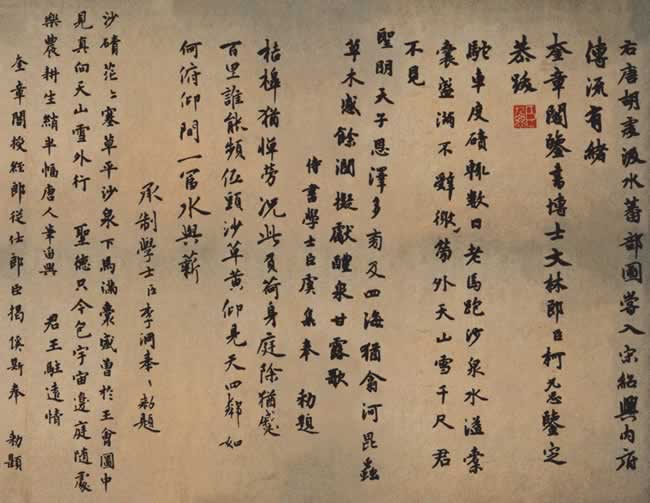 右唐胡虔汲水蕃部圖嘗入宋紹興內府
傳流有緒
奎章閣鑒書博士文林郎臣柯九思鑒定
恭跋
駝車度磧輒數日老馬跑沙泉水溢橐
囊盛滿不辭外天山雪千尺君
不見
聖明天子恩澤多育及四海猶翕河昆蟲
草木感餘潤擬獻醴泉甘露歌
侍書學士臣虞集奉 勑題
桔槹猶憚勞況此負荷身庭除猶
百里誰能頻低頭沙草黃仰見天四鄰如
何俯仰間一水與薪
承制學士臣李泂奉勑題
沙磧茫〻塞草平沙泉下馬滿囊盛曾於王會圖中
見真向天山雪外行 聖德只今包宇宙邊庭隨處
樂農耕生綃半幅唐人筆留與 君王駐遠情
奎章閣授經郎從仕郎臣揭傒斯奉 勑題